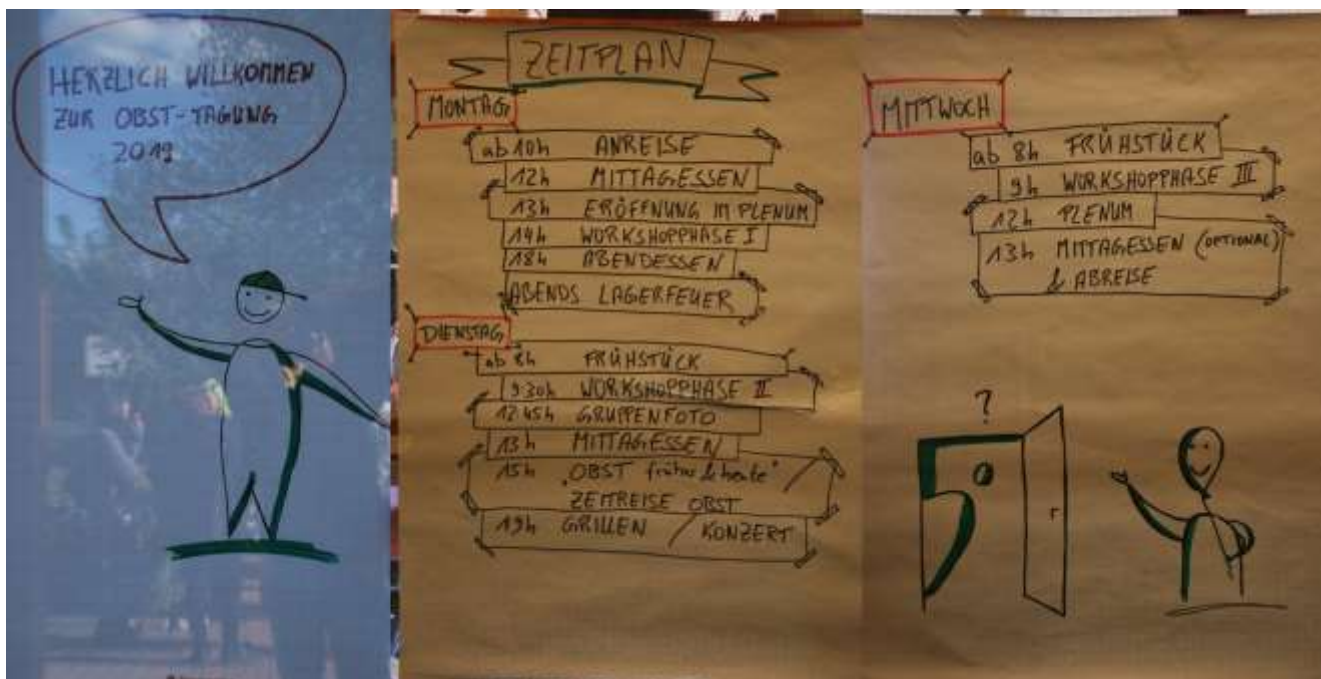 HERZLICH WILLKOMMEN
ZUR OBST-TAGUNG
2019
ZEITPLAN
MONTAG
ab 10h ANREISE
12h MITTAGESSEN
13h ERÖFFNUNG IM PLENUM
14h WORKSHOPPHASE I
18h ABENDESSEN
ABENDS LAGERFEUER
DIENSTAG
ab 8h FRÜHSTÜCK
9:30h WORKSHOPPHASE II
12:45h GRUPPENFOTO
13h MITTAGESSEN
15h „OBST früher & heute“ /
ZEITREISE OBST
19h GRILLEN / KONZERT
MITTWOCH
ab 8h FRÜHSTÜCK
9h WORKSHOPPHASE III
12h PLENUM
13h MITTAGESSEN (OPTIONAL)
& ABREISE
?